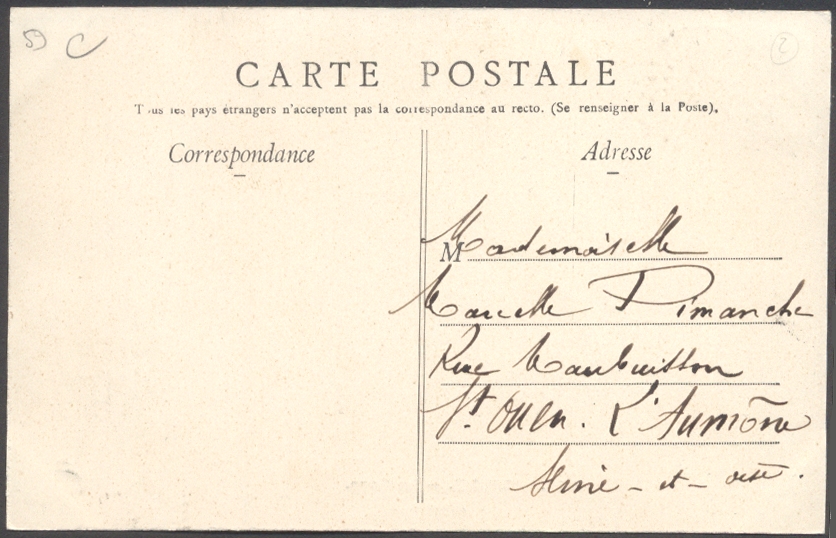 59
2
CARTE POSTALE
Tous les pays étrangers n'acceptent pas la correspondance au recto. (Se renseigner à la Poste).
Correspondance
Adresse
M
Mademoiselle
Marcelle Dimanche
Rue Maubuisson
St. Ouen. L'Aumône
Seine-et-Oise.